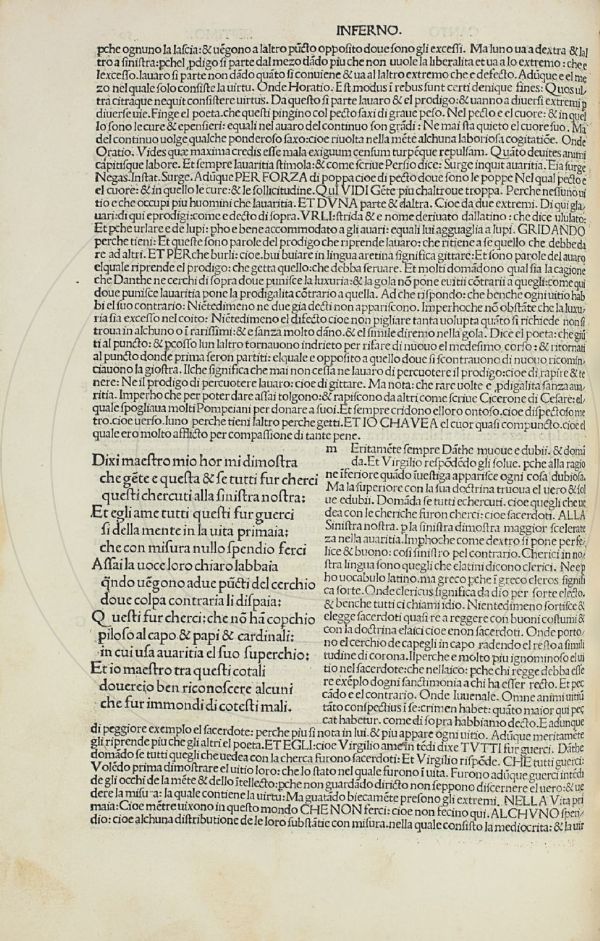 INFERNO.
pche ognuno la lascia: & uẽgono a laltro pũcto opposito doue sono gli excessi. Ma luno ua a dextra & lal
tro a sinistra: pchel pdigo si parte dal mezo dãdo piu che non uuole la liberalita et ua a lo extremo: che e
lexcesso. lauaro si parte non dãdo quãto si conuiene & ua al laltro extremo che e defecto. Adũque e el me
zo nel quale solo consiste la uirtu. Onde Horatio. Est modus ĩ rebus sunt certi denique fines: Quos ul
tra citraque nequit consistere uirtus. Da questo si parte lauaro & el prodigo: & uanno a diuersi extremi p
diuerse uie. Finge el poeta: che questi pingino col pecto saxi di graue peso. Nel pecto e el cuore: & in quel
lo sono le cure & e pensieri: equali nel auaro del continuo son grãdi: Ne mai sta quieto el cuore suo. Ma
del continuo uolge qualche ponderoso saxo: cioe riuolta nella mẽte alchuna laboriosa cogitatiõe. Onde
Oratio. Vides quæ maxima credis esse mala exiguum censum turpẽque repulsam. Quãto deuites animi
capitisque labore. Et sempre lauaritia stimola: & come scriue Persio dice: Surge inquit auaritia. Eia surge
Negas. Instat. Surge. Adũque PER FORZA di poppa cioe di pecto doue sono le poppe Nel qual pecto e
el cuore: & in quello le cure: & le sollicitudine. QVI VIDI Gẽte piu chaltroue troppa. Perche nessuno ui
tio e che occupi piu huomini che lauaritia. ET DVNA parte & daltra. Cioe da due extremi. Di qui gla
uari: di qui eprodigi: come e decto di sopra. VRLI: strida & e nome deriuato dallatino: che dice ululato:
Et pche urlare e de lupi: pho e bene accommodato a gli auari: equali lui agguaglia a lupi. GRIDANDO
perche tieni: Et queste sono parole del prodigo che riprende lauaro: che ritiene a se quello che debbe da
re ad altri. ET PER che burli: cioe. bui buiare in lingua aretina significa gittare: Et sono parole del auaro
elquale riprende el prodigo: che getta quello: che debba seruare. Et molti domãdono qual sia la cagione
che Danthe ne cerchi di sopra doue punisce la luxuria: & la gola nõ pone euitii cõtrarii a quegli: come qui
doue punisce lauaritia pone la prodigalita cõtrario a quella. Ad che rispondo: che benche ogni uitio hab
bi el suo contrario: Niẽtedimeno ne due gia decti non appariscono. Imperhoche nõ obstãte che la luxu
ria sia excesso nel coito. Niẽtedimeno el difecto cioe non pigliare tanta uolupta quãto si richiede non si
troua in alchuno o ĩ rarissimi: & e sanza molto dãno. & el simile diremo nella gola. Dice el poeta: che giũ
ti al puncto: & pcosso lun laltro tornauono indrieto per rifare di nuouo el medesimo, corso: & ritornati
al puncto donde prima seron partiti: elquale e opposito a quello doue si scontrauono di nuouo ricomin
ciauono la giostra. Ilche significa che mai non cessa ne lauaro di percuotere il prodigo: cioe di rapire & te
nere: Ne il prodigo di percuotere lauaro: cioe di gittare. Ma nota: che rare uolte e pdigalita sanza aua
ritia. Imperho che per poter dare assai tolgono: & rapiscono da altri come scriue Cicerone di Cesare: el
quale spogliaua molti Pompeiani per donare a suoi. Et sempre cridono ello ro ontoso. cioe dispectoso me
tro. cioe uerso. luno perche tieni laltro perche getti. ET IO CHAVEA el cuor quasi compuncto. cioe el
quale ero molto afflicto per compassione di tante pene.
Dixi maestro mio hor mi dimostra
che gẽte e questa & se tutti fur cherci
questi chercuti alla sinistra nostra:
Et egli ame tutti questi fur guerci
si della mente in la uita primaia:
che con misura nullo spendio ferci
Assai la uoce loro chiaro labbaia
qñdo uẽgono adue pũcti del cerchio
doue colpa contraria li dispaia:
Questi fur cherci: che nõ hã copchio
piloso al capo & papi & cardinali:
in cui usa auaritia el suo superchio:
Et io maestro tra questi cotali
douercio ben riconoscere alcuni
che fur immondi di cotesti mali.
m Eritamẽte sempre Dãthe muoue e dubii. & domã
da. Et Virgilio respõdẽdo gli solue. pche alla ragio
ne ĩferiore quãdo ĩuestiga apparisce ogni cosa dubiosa.
Ma la superiore con la sua doctrina truoua el uero & sol
ue edubii. Domãda se tutti echercuti. cioe quegli che ue
dea con le cheriche furon cherci: cioe sacerdoti. ALLA
Sinistra nostra. p la sinistra dimostra maggior scelerate
za nella auaritia. Imphoche come dextro si pone per fe
lice & buono: cosi sinistro pel contrario. Cherici in no
stra lingua sono quegli che elatini dicono clerici. Nee p
ho uocabulo latino. ma greco pche ĩ greco cleros signifi
ca sorte. Onde clericus significa da dio per sorte electo.
& benche tutti ci chiami idio. Nientedimeno sortisce &
elegge sacerdoti quasi re a reggere con buoni costumi &
con la doctrina elaici cioe enon sacerdoti. Onde porto
no el cerchio de capegli in capo radendo el resto a simili
tudine di corona. Ilperche e molto piu ignominoso el ui
tio nel sacerdote: che nel laico: pche chi regge debba esse
re exẽplo dogni sanctimonia a chi ha esser recto. Et pec
cado e el contrario. Onde Iuuenale. Omne animi uitium
tãto conspectius ĩ se: crimen habet: quãto maior qui pec
cat habetur. come di sopra habbiamo decto. E adunque
di peggiore exemplo el sacerdote: perche piu si nota in lui. & piu appare ogni uitio. Adũque meritamẽte
gli riprende piu che gli altri el poeta. ET EGLI: cioe Virgilio ame in tẽdi dixe TVTTI fur guerci. Dãthe
domãdo se tutti quegli che uedea con la cherca furono sacerdoti: Et Virgilio rispõde. CHE tutti guerci:
Volẽdo prima dimostrare el uitio loro: che lo stato nel quale furono ĩ uita. Furono adũque guerci intẽdi
de gli occhi de la mẽte & dello ĩtellecto: pche non guardado diricto non seppono discernere el uero: & ue
dere la misura: la quale contiene la uirtu: Ma guatãdo biecamẽte presono gli extremi. NELLA Vita pri
maia: Cioe mẽtre uixono in questo mondo CHE NON ferci: cioe non fecino qui. ALCHVNO spen
dio: cioe alchuna distributione de le loro substãtie con misura. nella quale consisto la mediocrita: & la uir